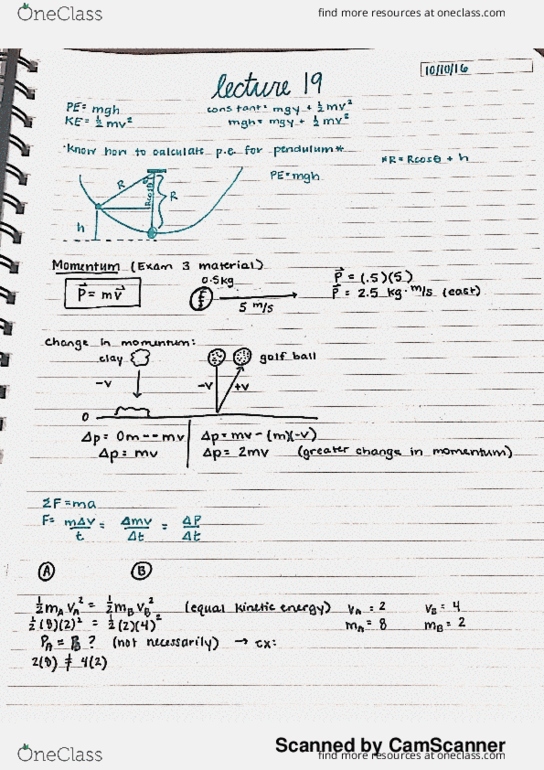 OneClass
find more resources at oneclass.com
10/10/16
lecture 19
PE= mgh
constant= mgy + ½mv²
KE= ½mv²
mgh= mgy + ½mv²
*know how to calculate p.e. for pendulum*
*R=Rcosθ + h
PE=mgh
R
θ
Rcosθ
R
h
Momentum (Exam 3 material)
0.5kg
P⃗ = mv⃗
5 m/s
P⃗ = (.5)(5)
P⃗ = 2.5 kg·m/s (east)
change in momentum:
clay
golf ball
-v
-v
+v
0
Δp= 0m--mv
Δp=mv-(m)(-v)
Δp= mv
Δp= 2mv (greater change in momentum)
ΣF=ma
F= mΔv/t = Δmv/Δt = ΔP/Δt
A
B
½mₐvₐ² = ½m_Bv_B² (equal kinetic energy) vₐ = 2 v_B = 4
½(8)(2)² = ½(2)(4)² mₐ= 8 m_B= 2
Pₐ = P_B ? (not necessarily) → ex:
2(8) ≠ 4(2)
Scanned by CamScanner
OneClass
find more resources at oneclass.com